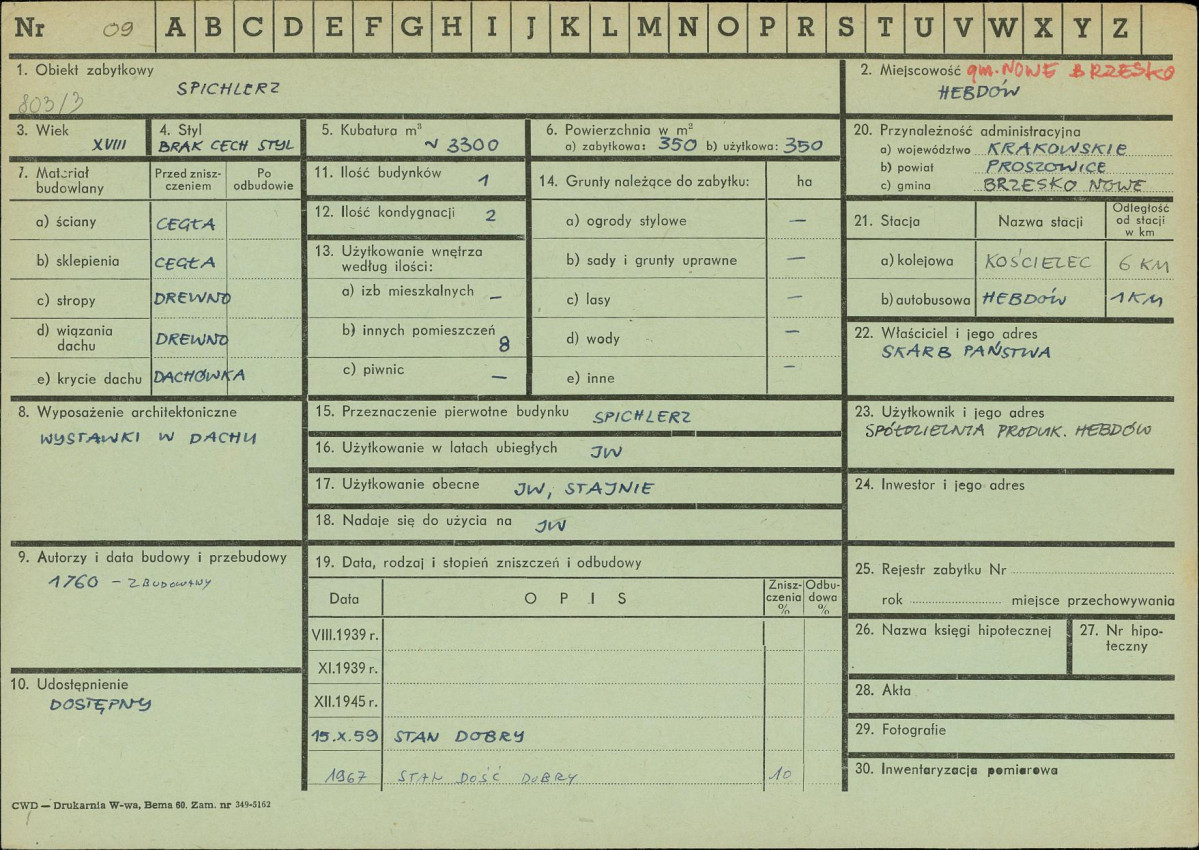 Nr 09 A B C D E F G H I J K L M N O P R S T U V W X Y Z
1. Obiekt zabytkowy
SPICHLERZ
803/3
2. Miejscowość gm. NOWE BRZESKO
HEBDÓW
3. Wiek
XVIII
4. Styl
BRAK CECH STYL
5. Kubatura m³
~ 3300
6. Powierzchnia w m²
a) zabytkowa: 350 b) użytkowa: 350
7. Materiał budowlany
Przed zniszczeniem
Po odbudowie
a) ściany CEGŁA
b) sklepienia CEGŁA
c) stropy DREWNO
d) wiązania dachu DREWNO
e) krycie dachu DACHÓWKA
8. Wyposażenie architektoniczne
WYSTAWKI W DACHU
9. Autorzy i data budowy i przebudowy
1760 – ZBUDOWANY
10. Udostępnienie
DOSTĘPNY
11. Ilość budynków 1
12. Ilość kondygnacji 2
13. Użytkowanie wnętrza
według ilości:
a) izb mieszkalnych –
b) innych pomieszczeń
8
c) piwnic –
14. Grunty należące do zabytku: ha
a) ogrody stylowe –
b) sady i grunty uprawne –
c) lasy –
d) wody –
e) inne –
15. Przeznaczenie pierwotne budynku SPICHLERZ
16. Użytkowanie w latach ubiegłych JW
17. Użytkowanie obecne JW, STAJNIE
18. Nadaje się do użycia na JW
19. Data, rodzaj i stopień zniszczeń i odbudowy
Data OPIS Zniszczenia % Odbudowa %
VIII.1939 r.
XI.1939 r.
XII.1945 r.
15.X.59 STAN DOBRY
1967 STAN DOŚĆ DOBRY 10
20. Przynależność administracyjna
a) województwo KRAKOWSKIE
b) powiat PROSZOWICE
c) gmina BRZESKO NOWE
21. Stacja Nazwa stacji Odległość od stacji w km
a) kolejowa KOŚCIELEC 6 KM
b) autobusowa HEBDÓW 1 KM
22. Właściciel i jego adres
SKARB PAŃSTWA
23. Użytkownik i jego adres
SPÓŁDZIELNIA PRODUK. HEBDÓW
24. Inwestor i jego adres
25. Rejestr zabytku Nr
rok miejsce przechowywania
26. Nazwa księgi hipotecznej
27. Nr hipoteczny
28. Akta
29. Fotografie
30. Inwentaryzacja pomiarowa
CWD — Drukarnia W-wa, Bema 60. Zam. nr 349-5162